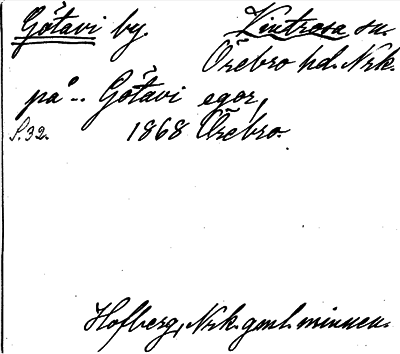 Götavi by. Vintrosa sn.
Örebro hd. Nrk.
på .. Götavi egor,
S. 32. 1868 Örebro.
Hofberg, Nrk. gml. minnen.